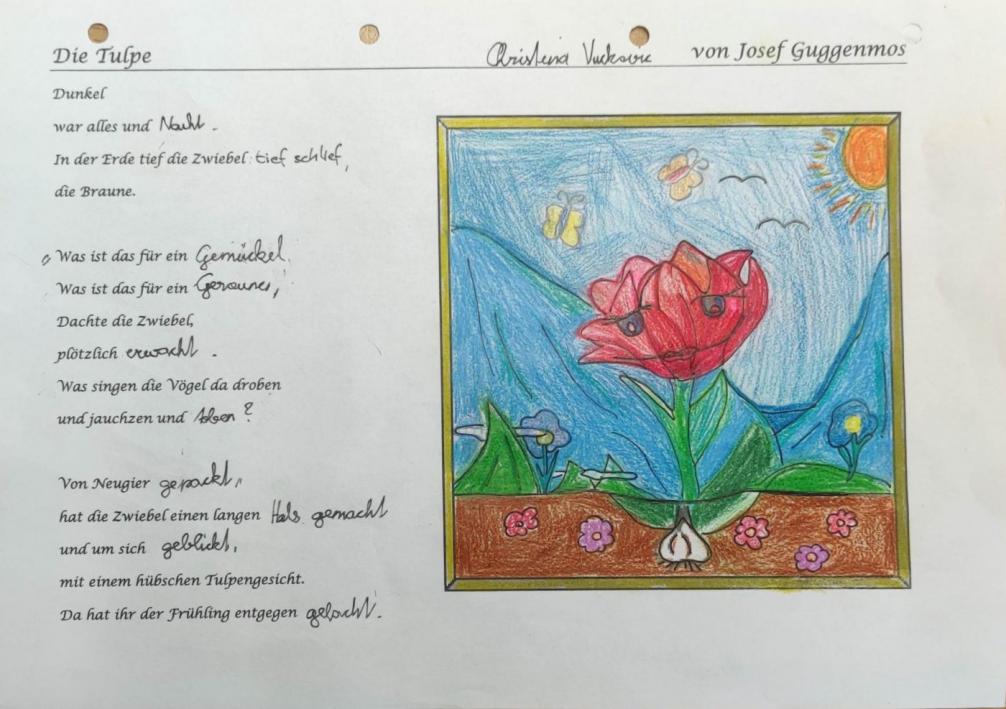 Die Tulpe Christena Vuckovic von Josef Guggenmos
Dunkel
war alles und Nacht.
In der Erde tief die Zwiebel tief schlief,
die Braune.
„Was ist das für ein Gemückel,
Was ist das für ein Geraune,
Dachte die Zwiebel,
plötzlich erwacht.
Was singen die Vögel da droben
und jauchzen und toben?
Von Neugier gepackt,
hat die Zwiebel einen langen Hals gemacht
und um sich geblickt,
mit einem hübschen Tulpengesicht.
Da hat ihr der Frühling entgegen gelacht.